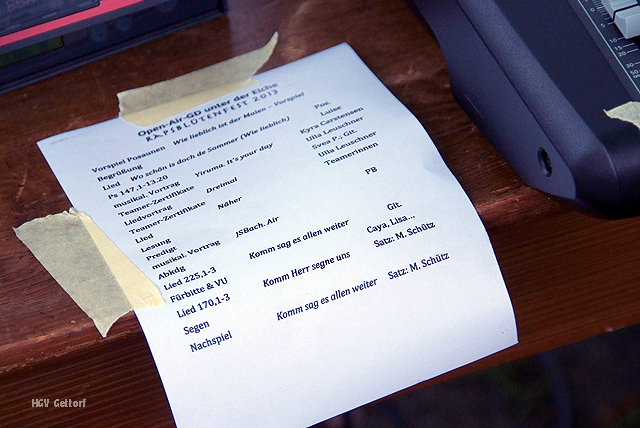 Open-Air-GD unter der Eiche
RAPSBLÜTENFEST 2013
Vorspiel Posaunen Wie lieblich ist der Maien – Vorspiel Pos.
Begrüßung Luise
Lied Wo schön is doch de Sommer (Wie lieblich)
Ps 147,1-13.20 Kyra Carstensen
musikal. Vortrag Yiruma. It's your day Ulla Leuschner
Teamer-Zertifikate Svea P.: Git.
Liedvortrag Dreimal Ulla Leuschner
Teamer-Zertifikate Teamerinnen
Lied Näher
Lesung
Predigt PB
musikal. Vortrag JSBach. Air
Abkdg
Lied 225,1-3 Komm sag es allen weiter Git.
Fürbitte & VU Caya, Lisa...
Lied 170,1-3 Komm Herr segne uns Satz: M. Schütz
Segen
Nachspiel Komm sag es allen weiter Satz: M. Schütz
HGV Gettorf